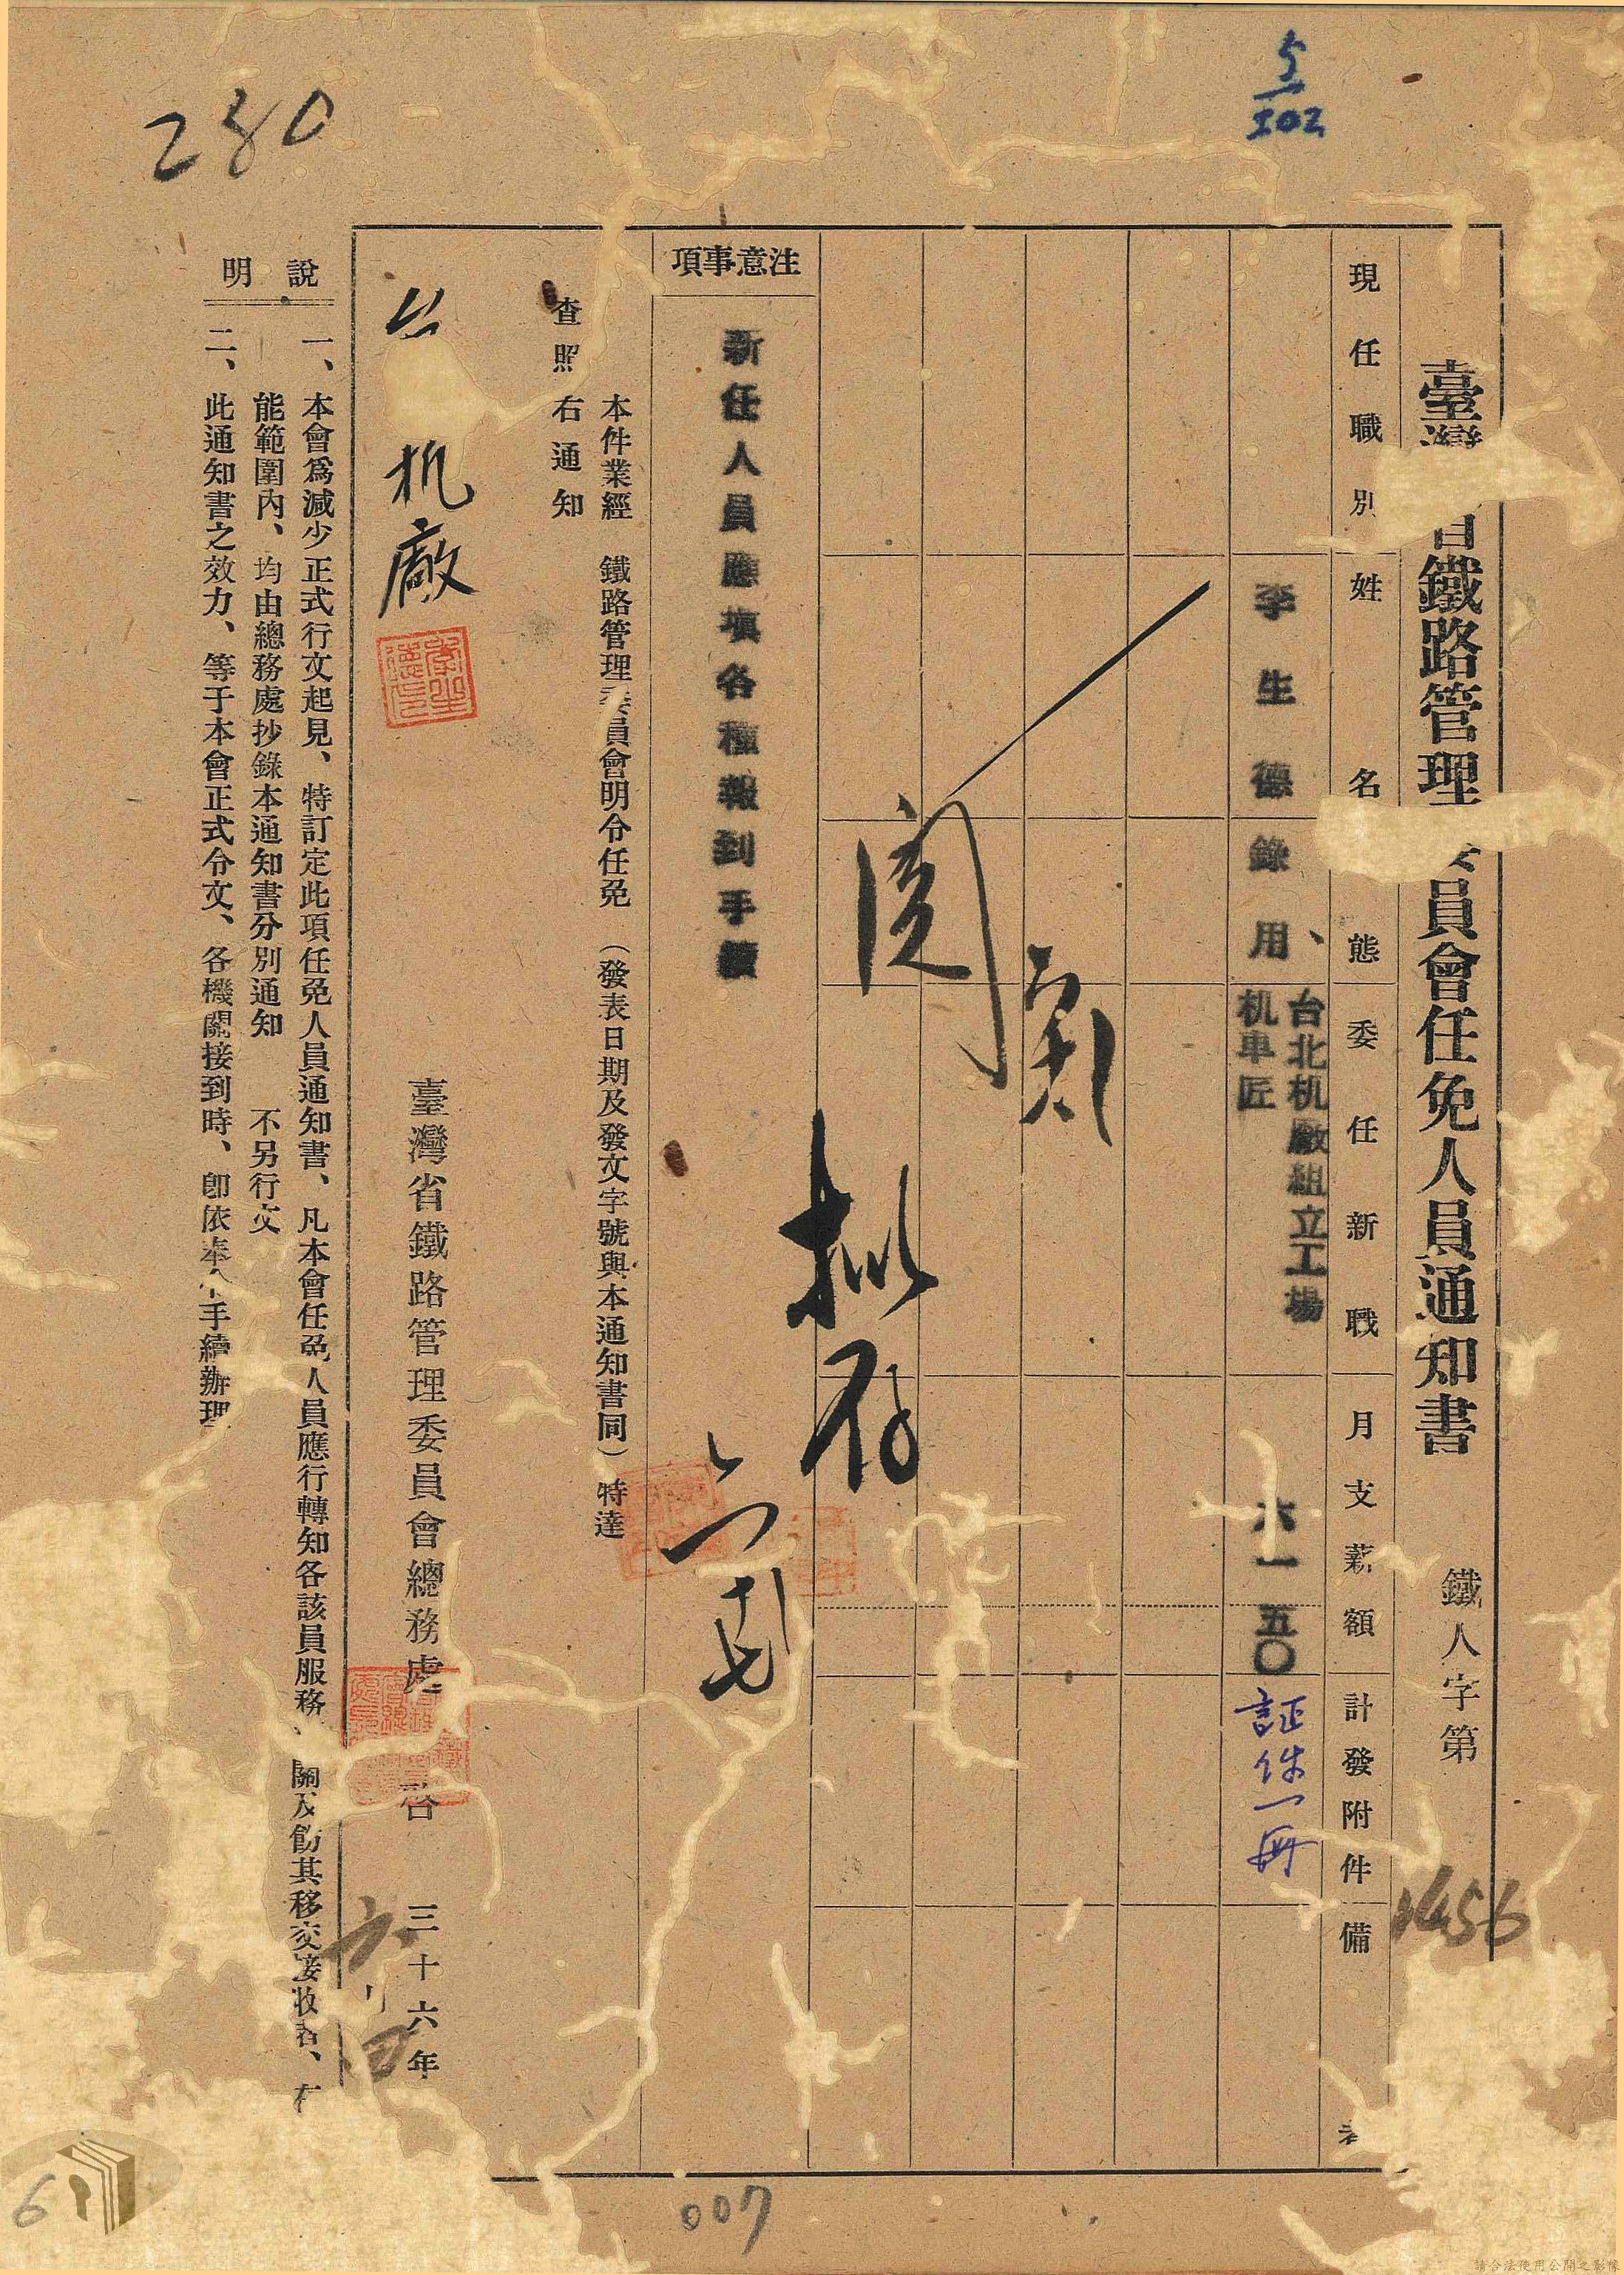 5/202
280
臺灣省鐵路管理委員會任免人員通知書
鐵人字第
1456
現任職別 姓名 態 委任新職 月支薪額 計發附件 備
李生德 錄用、 台北机廠組立工場 机車匠 六一 五〇 証件一册
注意事項
新任人員應填各種報到手續
閱
擬存
六
本件業經 鐵路管理委員會明令任免 (發表日期及發文字號與本通知書同) 特達
查照 右通知
机廠
李生德印
臺灣省鐵路管理委員會總務處 啓 三十六年
六月
說明
一、本會爲減少正式行文起見、特訂定此項任免人員通知書、凡本會任免人員應行轉知各該員服務 關及飭其移交接收者、在
能範圍內、均由總務處抄錄本通知書分別通知 不另行文
二、此通知書之效力、等于本會正式令文、各機關接到時、卽依奉令手續辦理
007
6
請合法使用公開之影像